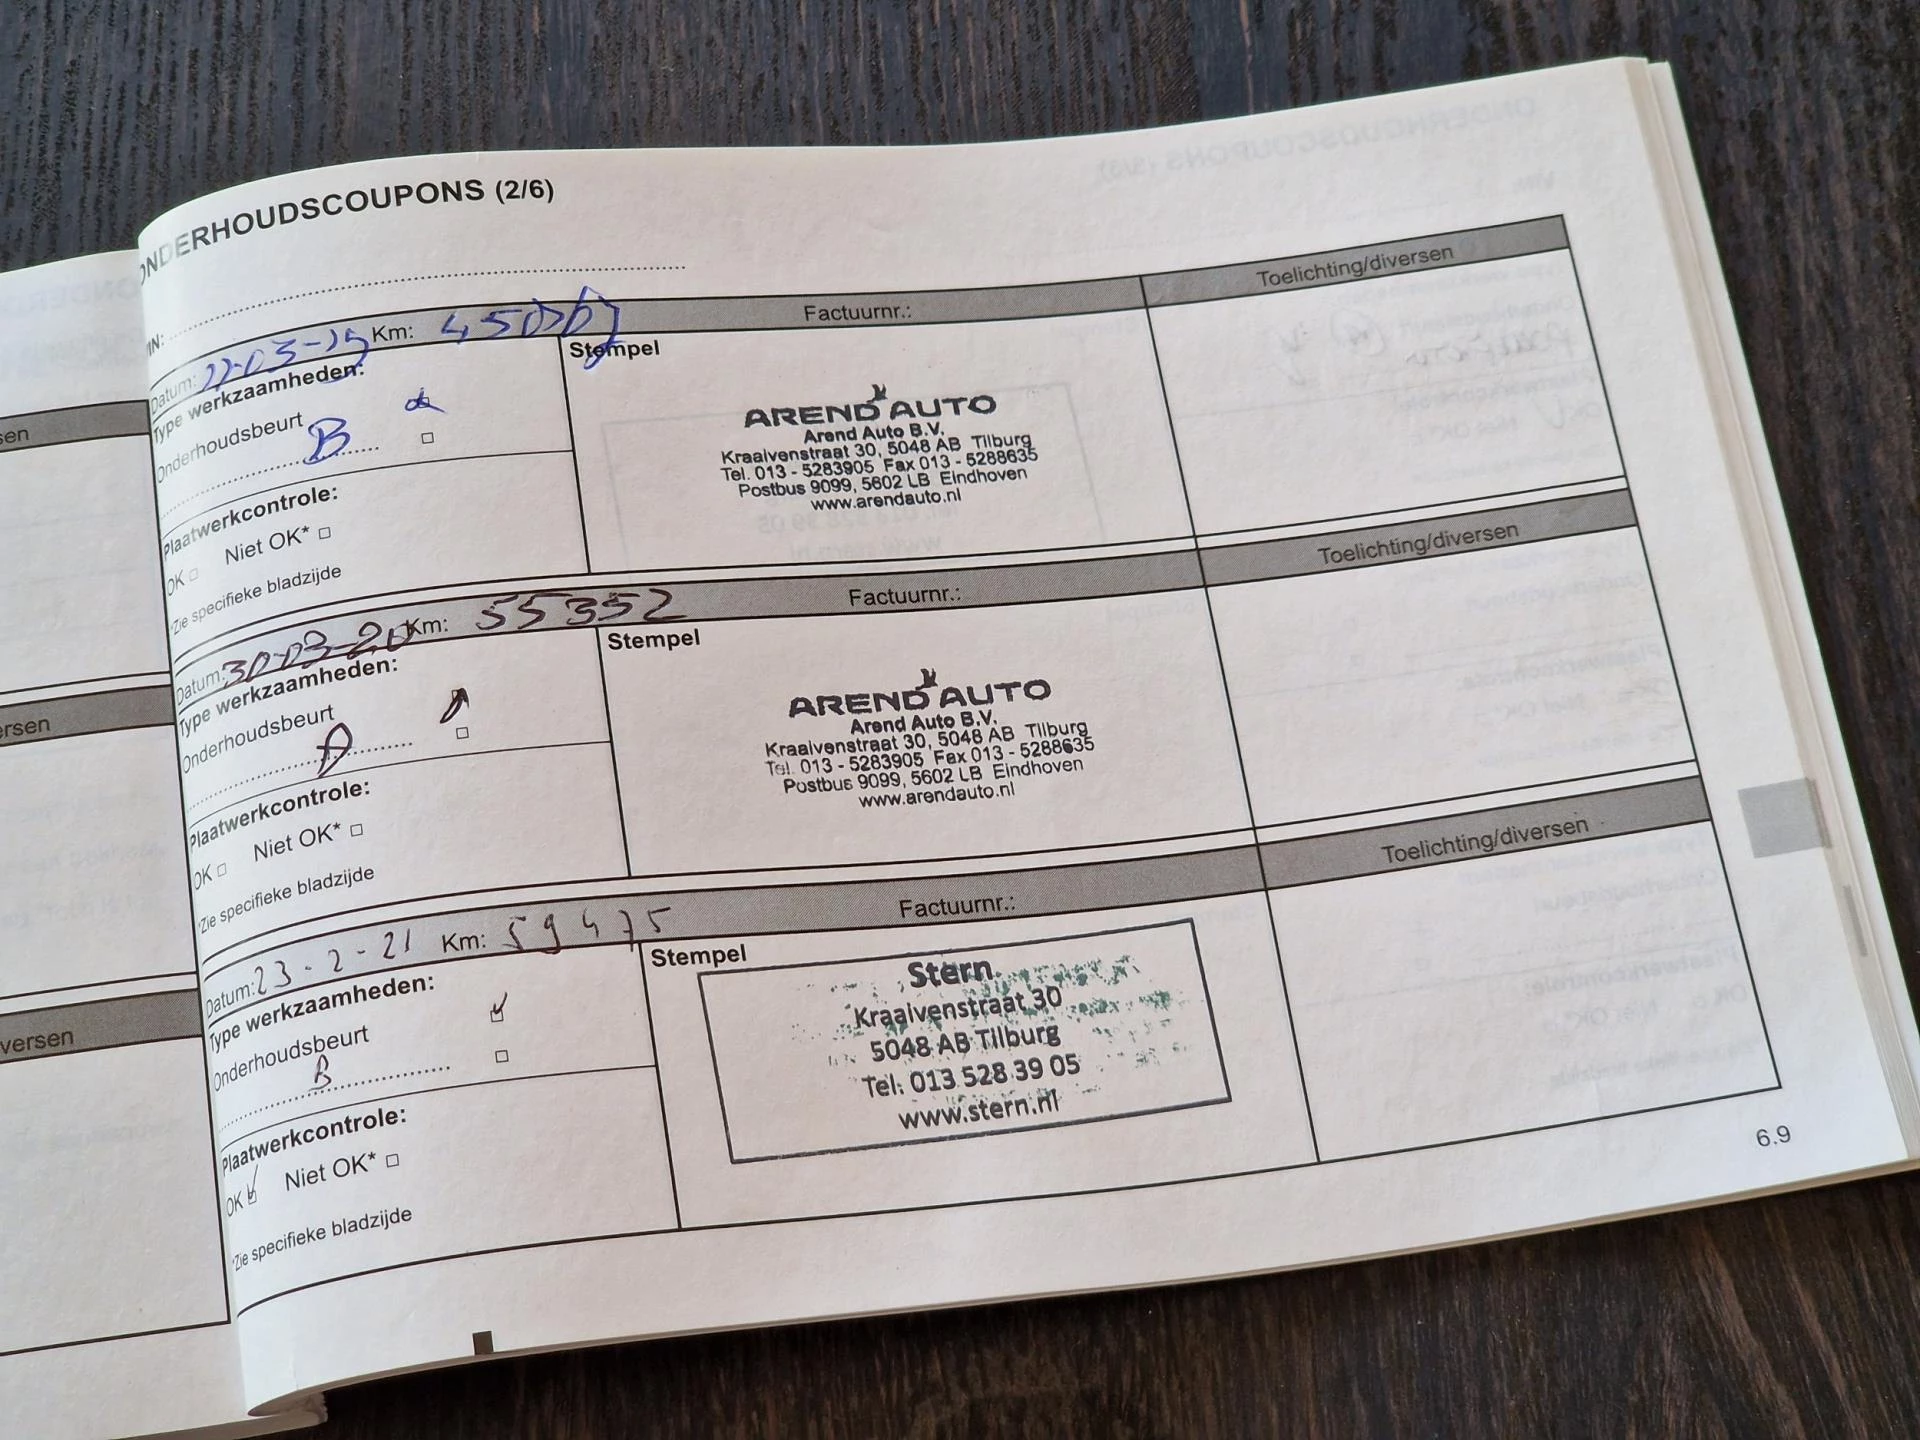 ONDERHOUDSCOUPONS (2/6)
VIN:
Datum: Km: Factuurnr.: Toelichting/diversen
Type werkzaamheden: Stempel
Onderhoudsbeurt
B
Plaatwerkcontrole:
OK Niet OK*
*Zie specifieke bladzijde
AREND AUTO
Arend Auto B.V.
Kraaivenstraat 30, 5048 AB Tilburg
Tel. 013 - 5283905 Fax 013 - 5288635
Postbus 9099, 5602 LB Eindhoven
www.arendauto.nl
Datum: 30-03-20 Km: 55352 Factuurnr.: Toelichting/diversen
Type werkzaamheden: Stempel
Onderhoudsbeurt
A
Plaatwerkcontrole:
OK Niet OK*
*Zie specifieke bladzijde
AREND AUTO
Arend Auto B.V.
Kraaivenstraat 30, 5048 AB Tilburg
Tel. 013 - 5283905 Fax 013 - 5288635
Postbus 9099, 5602 LB Eindhoven
www.arendauto.nl
Datum: 23-2-21 Km: 59475 Factuurnr.: Toelichting/diversen
Type werkzaamheden: Stempel
Onderhoudsbeurt
B
Plaatwerkcontrole:
OK Niet OK*
*Zie specifieke bladzijde
Stern
Kraaivenstraat 30
5048 AB Tilburg
Tel: 013 528 39 05
www.stern.nl
6.9